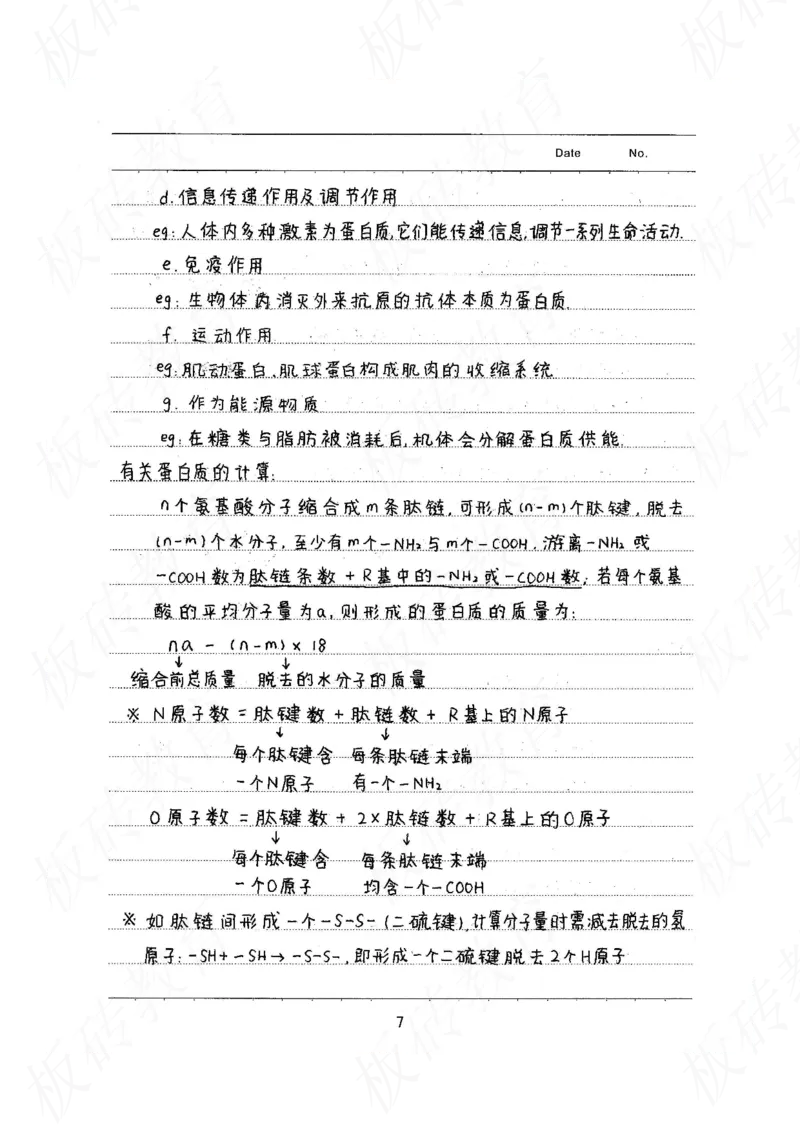 Date No.
d.信息传递作用及调节作用
eg:人体内多种激素为蛋白质,它们能传递信息,调节一系列生命活动.
e.免疫作用
eg:生物体内消灭外来抗原的抗体本质为蛋白质.
f. 运动作用
eg:肌动蛋白、肌球蛋白构成肌肉的收缩系统
g. 作为能源物质
eg:在糖类与脂肪被消耗后,机体会分解蛋白质供能.
有关蛋白质的计算:
n个氨基酸分子缩合成m条肽链,可形成(n-m)个肽键,脱去
(n-m)个水分子,至少有m个-NH₂与m个-COOH.游离-NH₂或
-COOH数为肽链条数+R基中的-NH₂或-COOH数;若每个氨基
酸的平均分子量为a,则形成的蛋白质的质量为:
na - (n-m)×18
↓ ↓
缩合前总质量 脱去的水分子的质量
※ N原子数=肽键数+肽链数+R基上的N原子
↓ ↓
每个肽键含 每条肽链末端
一个N原子 有一个-NH₂
O原子数=肽键数+2×肽链数+R基上的O原子
↓ ↓
每个肽键含 每条肽链末端
一个O原子 均含一个-COOH
※ 如肽链间形成一个-S-S-(二硫键),计算分子量时需减去脱去的氢
原子:-SH+-SH→-S-S-,即形成一个二硫键脱去2个H原子
7
板砖教育